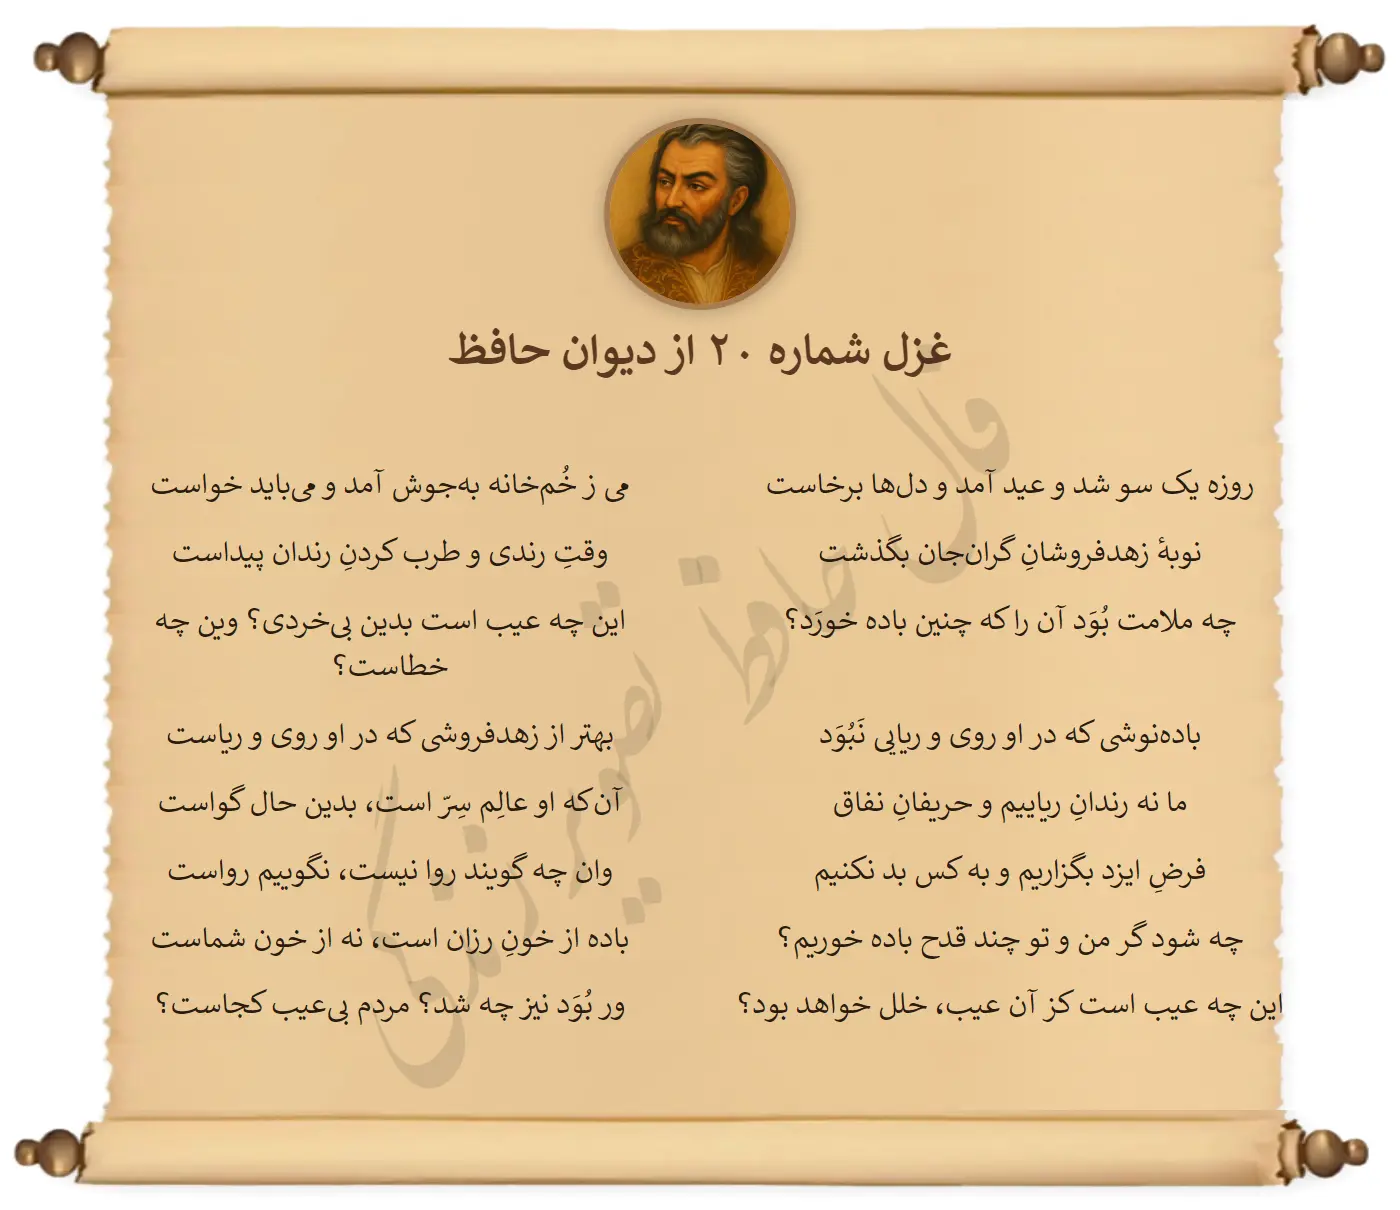 غزل شماره ۲۰ از دیوان حافظ
روزه یک سو شد و عید آمد و دل‌ها برخاست
می ز خُم‌خانه به‌جوش آمد و می‌باید خواست
نوبهٔ زهدفروشانِ گران‌جان بگذشت
وقتِ رندی و طرب کردنِ رندان پیداست
چه ملامت بُوَد آن را که چنین باده خورَد؟
این چه عیب است بدین بی‌خردی؟ وین چه
خطاست؟
باده‌نوشی که در او روی و ریایی نَبُوَد
بهتر از زهدفروشی که در او روی و ریاست
ما نه رندانِ ریاییم و حریفانِ نفاق
آن‌که او عالِم سِرّ است، بدین حال گواست
فرضِ ایزد بگزاریم و به کس بد نکنیم
وان چه گویند روا نیست، نگوییم رواست
چه شود گر من و تو چند قدح باده خوریم؟
باده از خونِ رزان است، نه از خون شماست
این چه عیب است کز آن عیب، خلل خواهد بود؟
ور بُوَد نیز چه شد؟ مردم بی‌عیب کجاست؟
فال حافظ تصویر زندگی